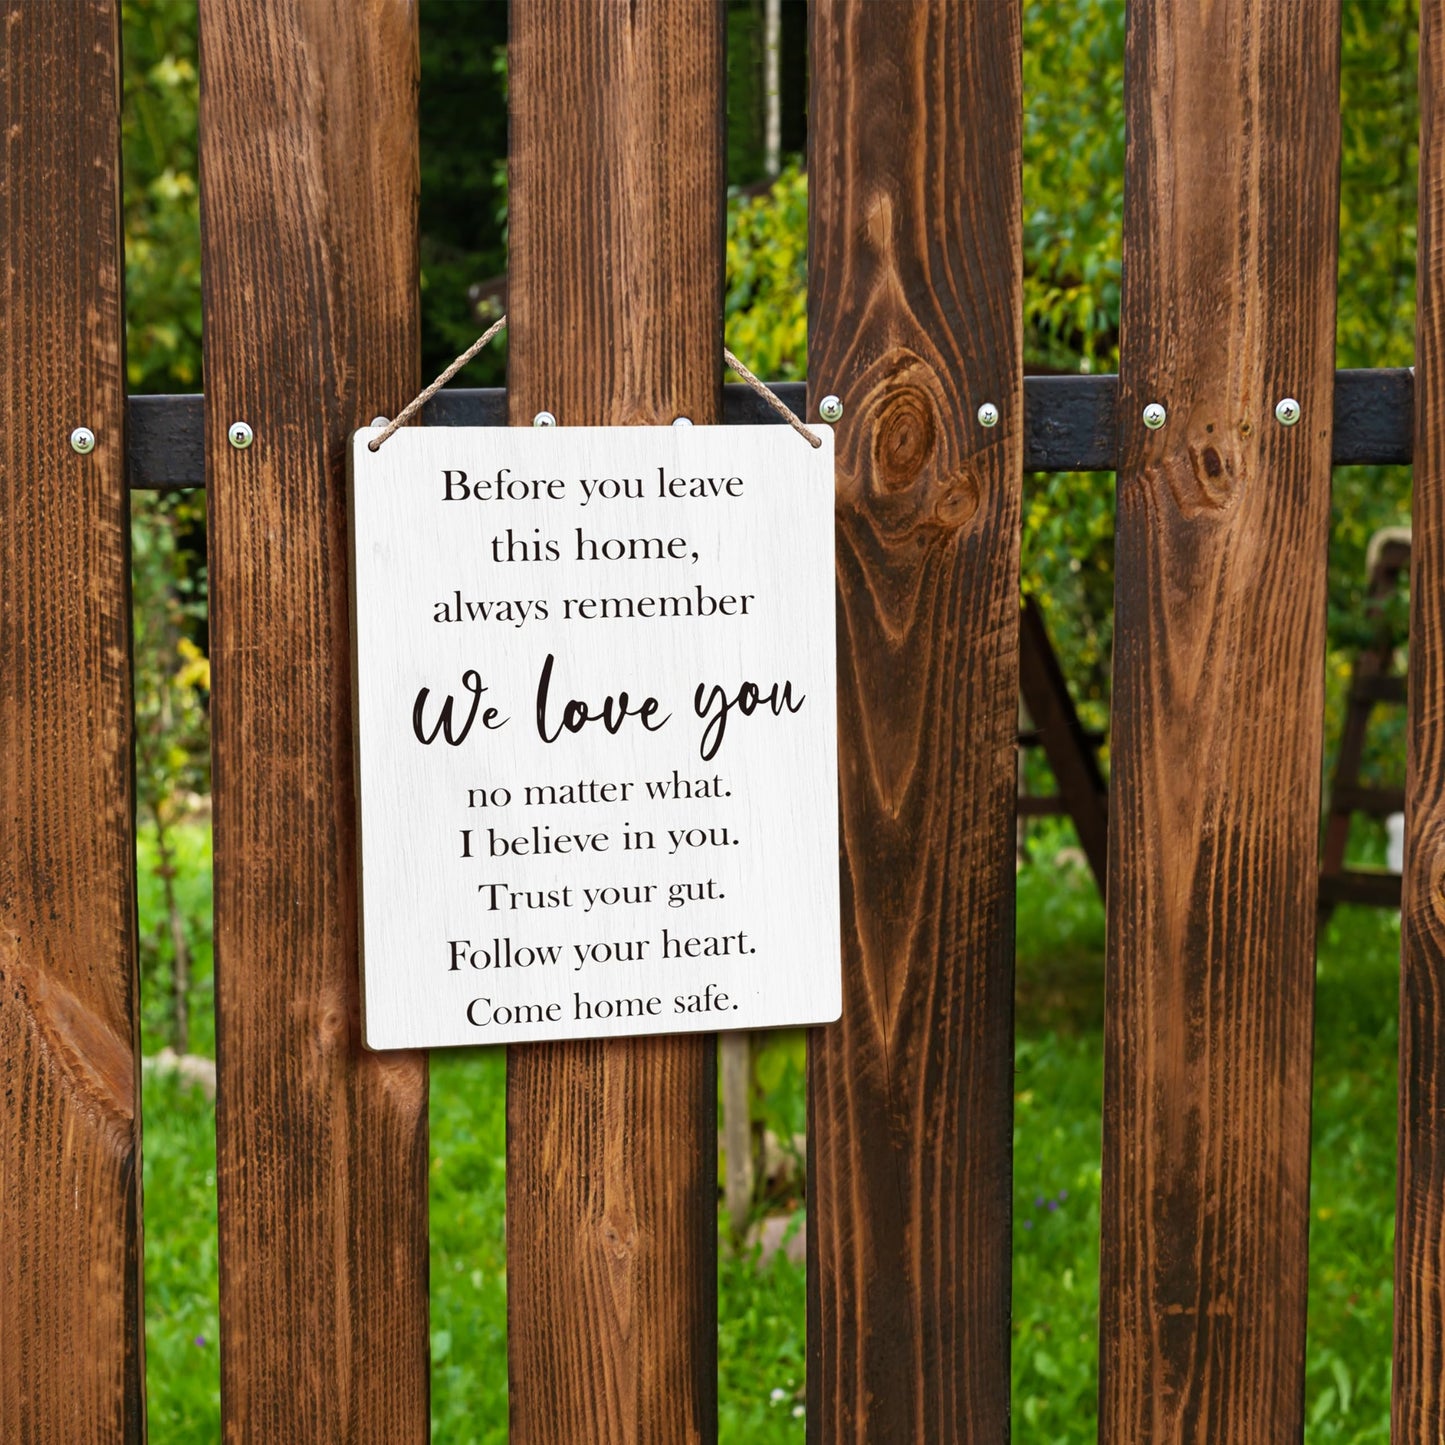 Before you leave
this home,
always remember
We love you
no matter what.
I believe in you.
Trust your gut.
Follow your heart.
Come home safe.